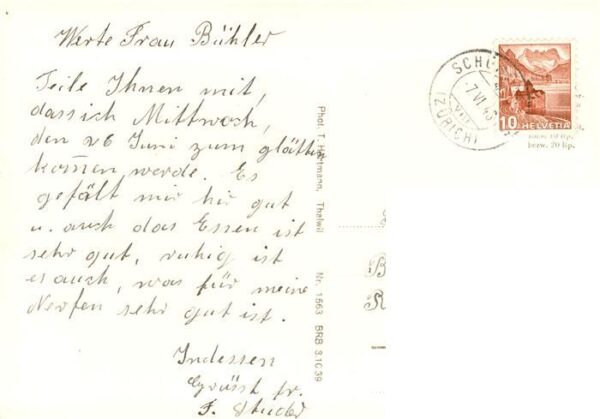 Werte Frau Bühler
Teile Ihnen mit,
dass ich Mittwoch,
den 26 Juni zum glätten
kommen werde. Es
gefält mir hir gut
u. auch das Essen ist
sehr gut, ruhig ist
es auch, was für meine
Nerfen sehr gut ist.
Indessen
Grüsst fr.
F. Studer
Phot. T. Hartmann, Thalwil Nr. 1563 BRB 3.10.39
SCHÖ
(ZÜRICH)
10 HELVETIA
bezw. 20 Rp.